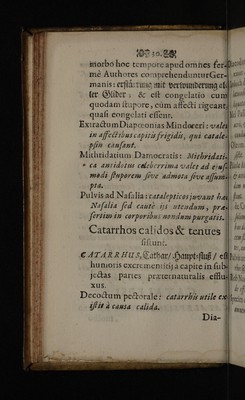 30.
morbo hoc tempore apud omnes fer-
mè Authores comprehenduntur Ger-
manis: erstarrung mit verwunderung al-
ler Glider; & est congelatio cum
quodam stupore, cùm affecti rigeant
quasi congelati essent.
Extractum Diapæonias Mindoreri: valet
in affectibus capitis frigidis, qui catale-
psin causant.
Mithridatium Damocratis: Mithridati-
ca antidotus celeberrima valet ad
modi stuporem sive admota sive assum-
pta.
Pulvis ad Nasalia: catalepticos juvant hæc
Nasalia sed cautè iis utendum, præ-
sertim in corporibus nondum purgatis.
Catarrhos calidos & tenues
sistunt.
CATARRHUS, Cathar/ Haupt-fluß/ est
humoris excrementitij à capite in sub-
jectas partes præternaturalis efflu-
xus.
Decoctum pectorale: catarrhis utile ex-
istit à causa calida.
Dia-